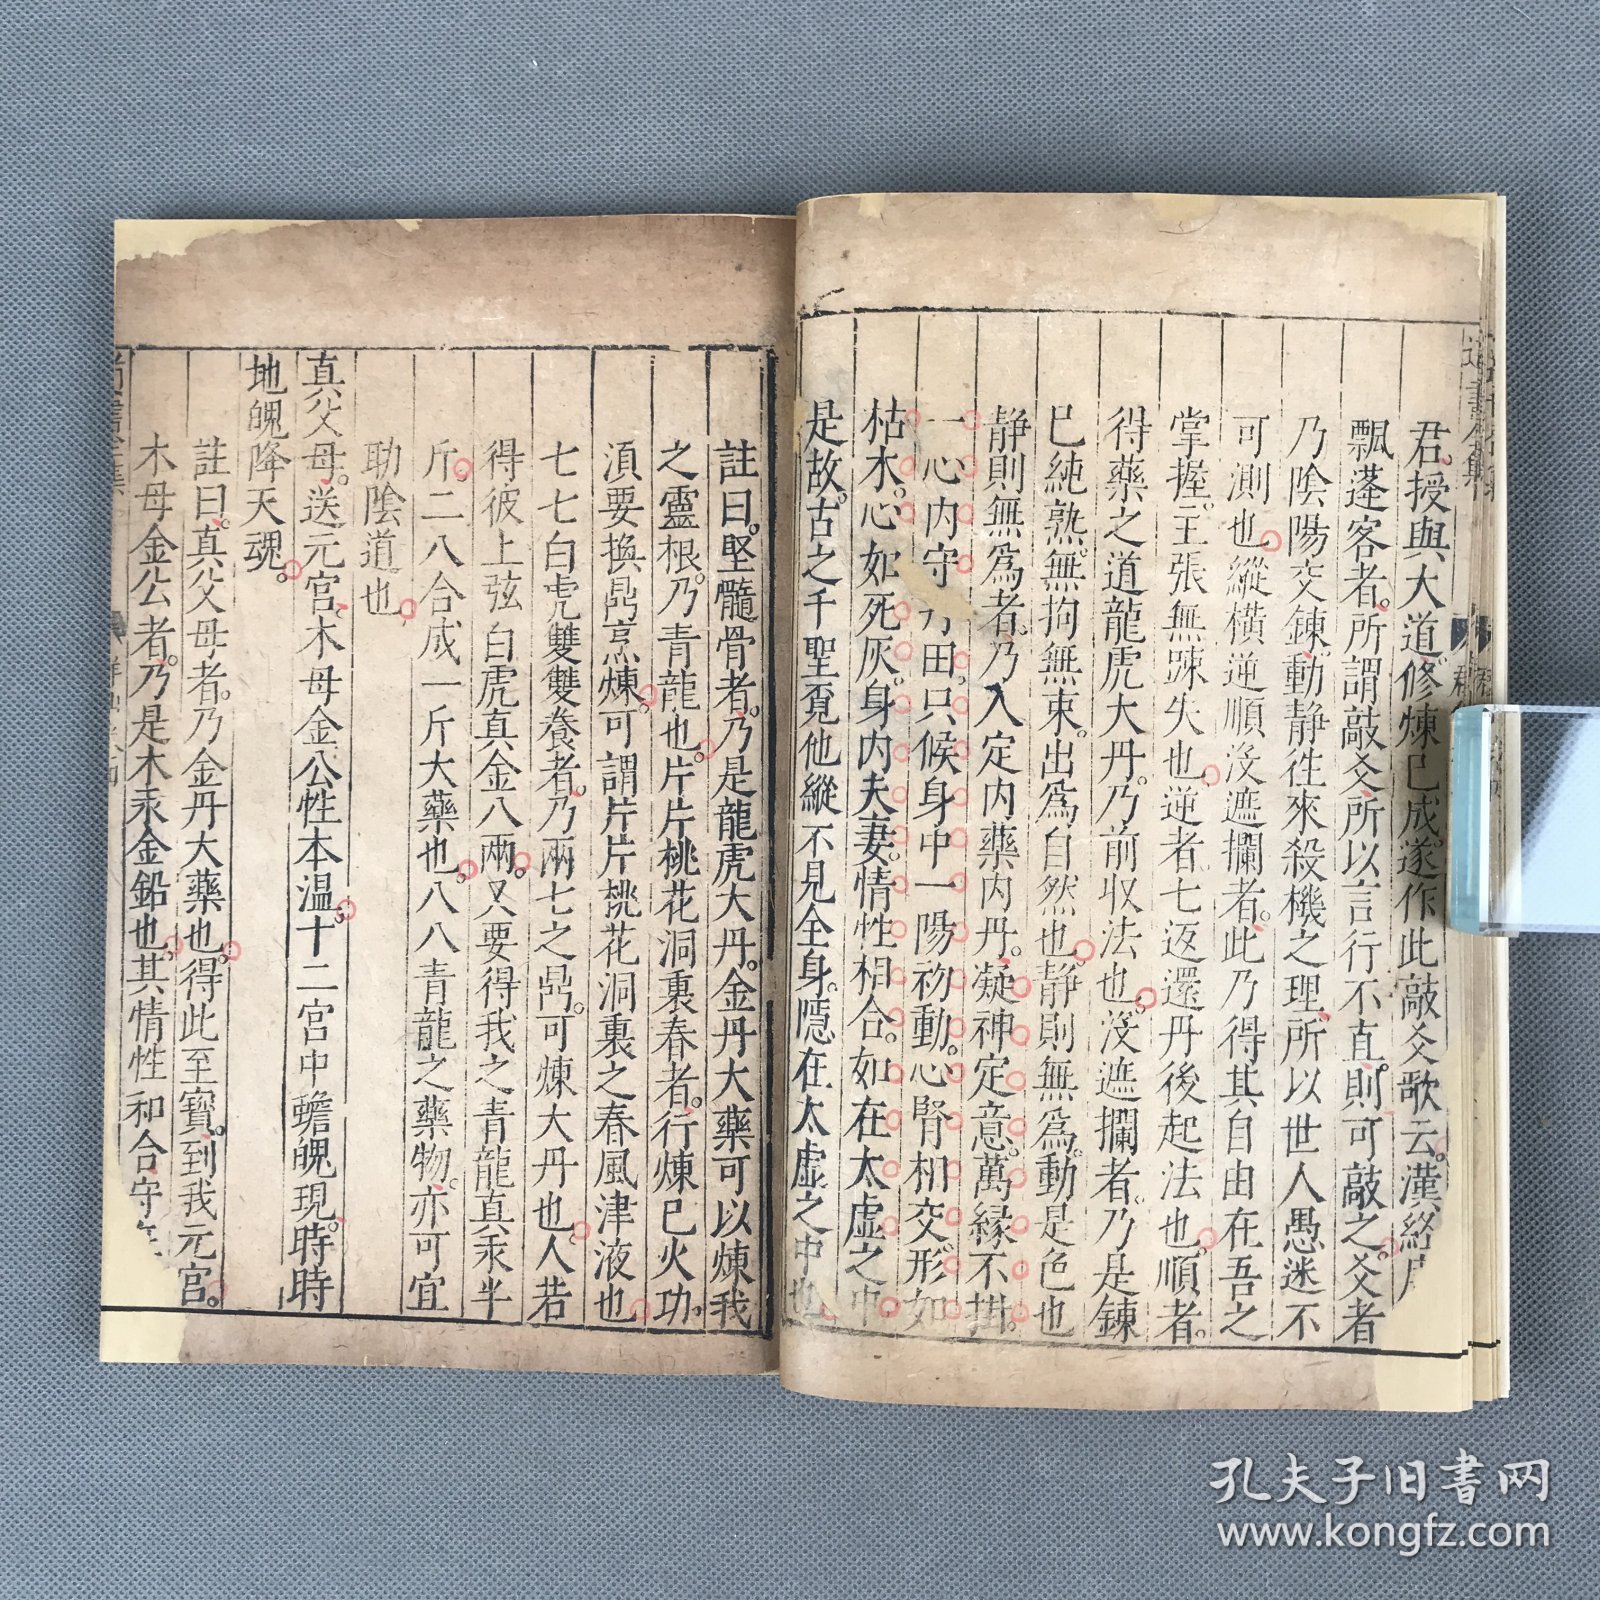 君授與大道修煉已成遂作此敲爻歌云漢終
飄蓬客者所謂敲爻所以言行不直則可敲之爻者
乃陰陽交鍊動靜徃來殺機之理所以世人愚迷不
可測也縱橫逆順没遮攔者此乃得其自由在吾之
掌握主張無踈失也逆者七返還丹後起法也順者
得藥之道龍虎大丹乃前収法也没遮攔者乃是鍊
已純熟無拘無束出為自然也静則無為動是色也
静則無為者乃入定内藥内丹凝神定意萬縁不掛
一心内守 田只候身中一陽初動心腎相交形如
枯木心如死灰身内夫妻情性相合如在太虛之中
是故古之千聖覔他縱不見全身隱在太虛之中也
註曰堅髓骨者乃是龍虎大丹金丹大藥可以煉我
之靈根乃青龍也片片桃花洞裏春者行煉已火功
湏要換鼎烹煉可謂片片桃花洞裏之春風津液也
七七白虎雙雙養者乃兩七之鼎可煉大丹也人若
得彼上弦白虎真金八兩又要得我之青龍真汞半
斤二八合成一斤大藥也八八青龍之藥物亦可宜
助陰道也
真父母送元宫木母金公性本温十二宫中蟾魄現時時
地魄降天魂
註曰真父母者乃金丹大藥也得此至寳到我元宫
木母金公者乃是木汞金鉛也其情性和合守
孔夫子旧書网
www.kongfz.com